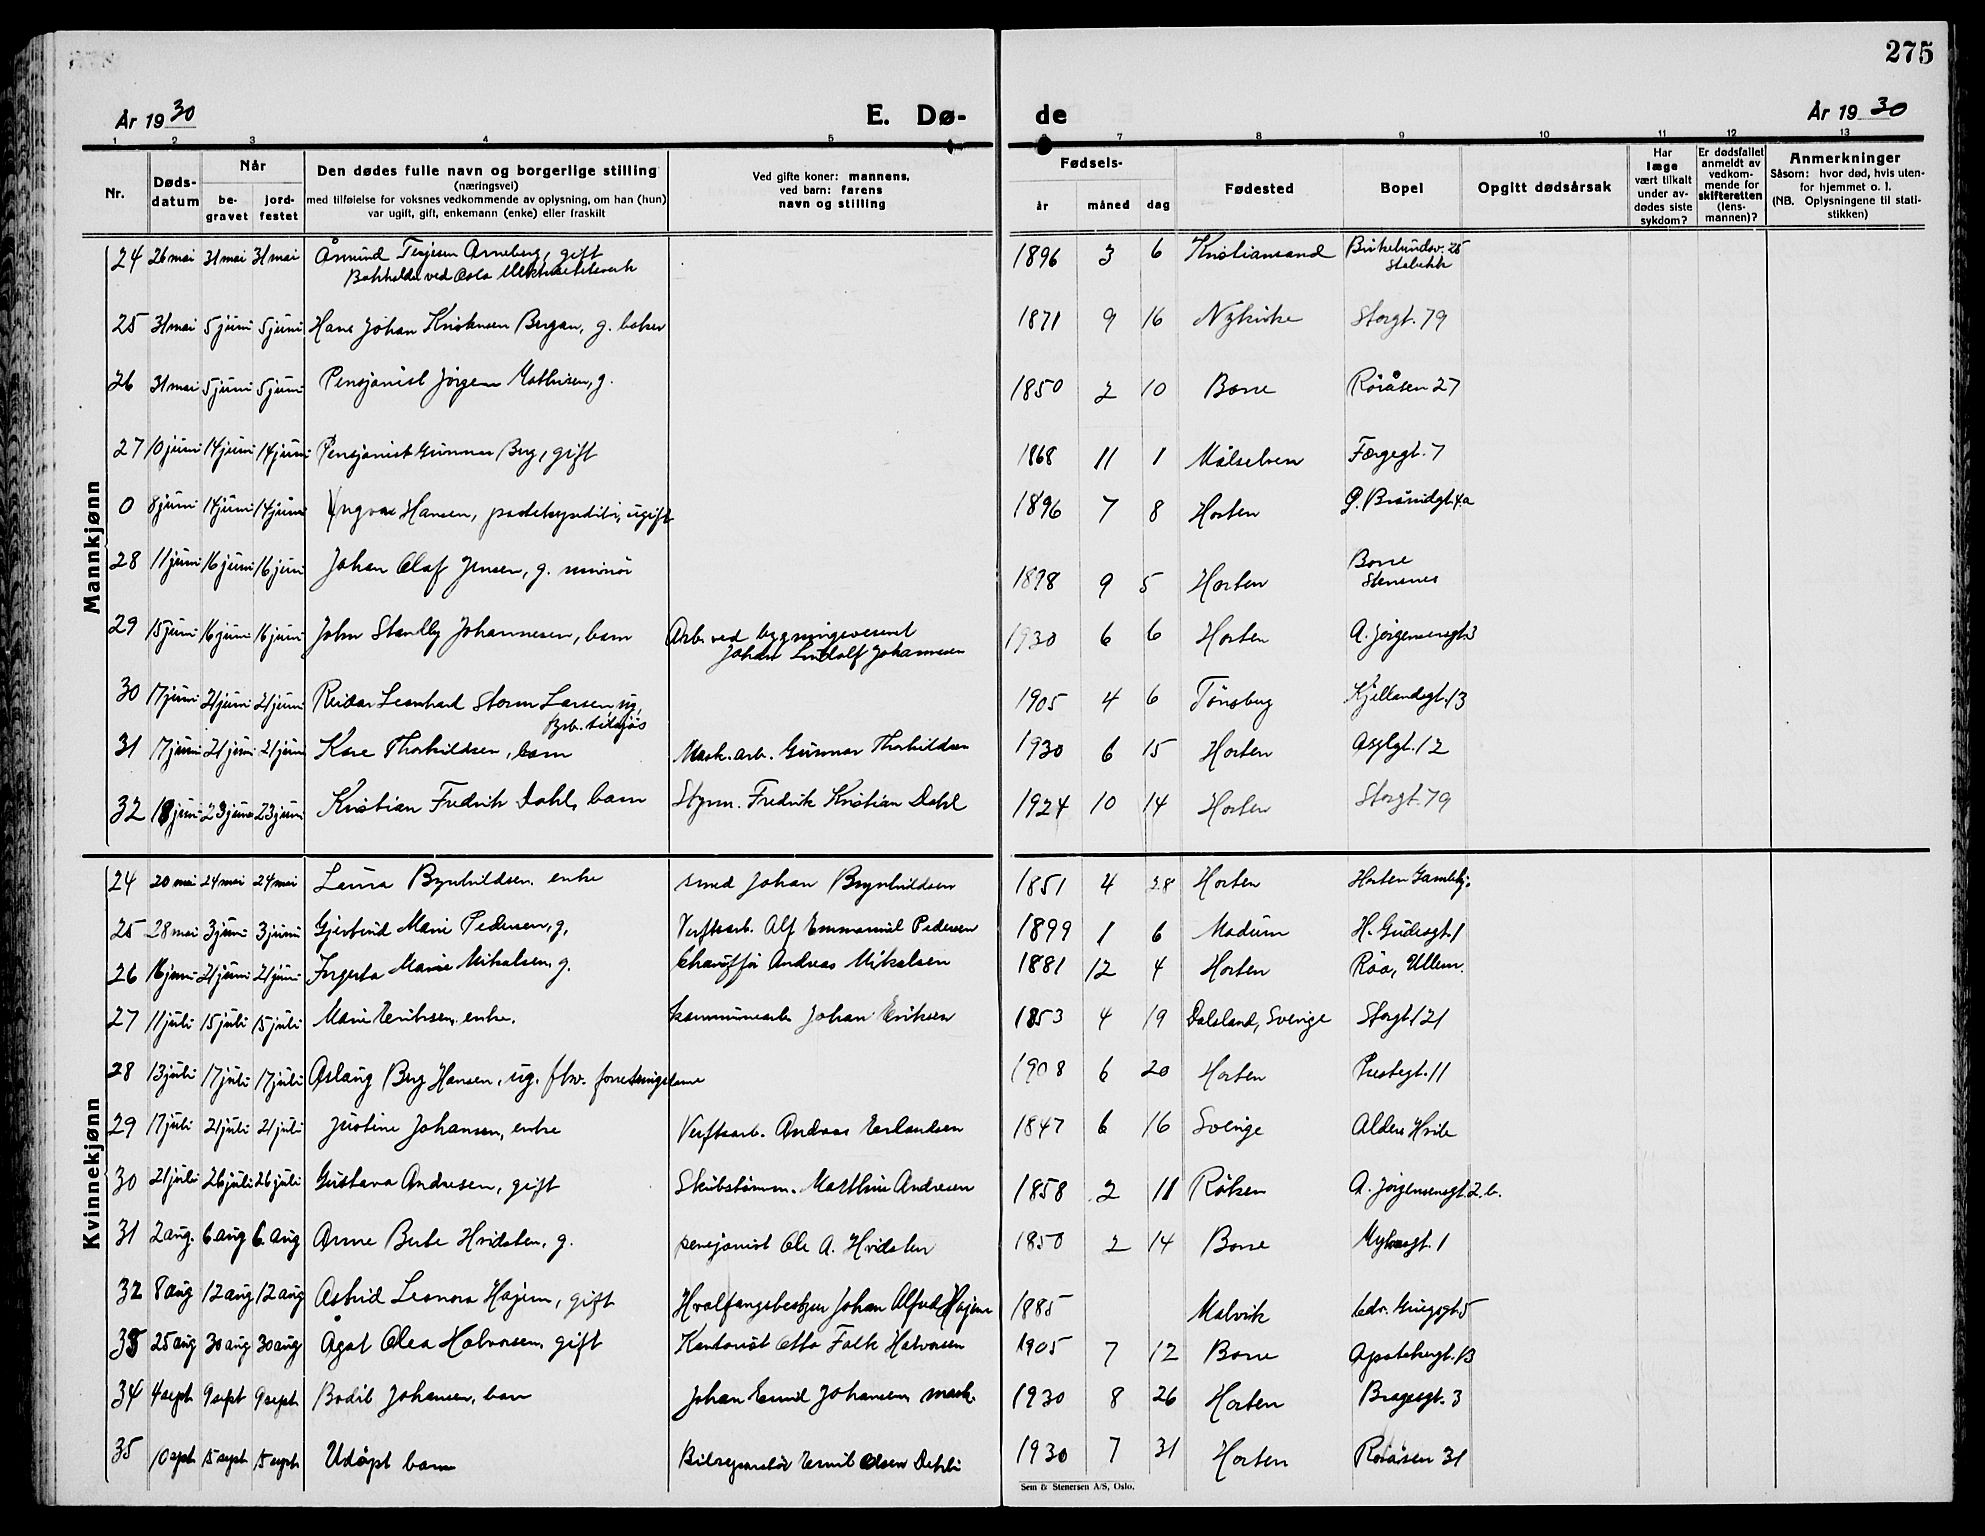 275
År 1930 E. Dø- de År 1930
1 2 3 4 5 6 7 8 9 10 11 12 13
Nr.
Døds-
datum
Når
be-
gravet
jord-
festet
Den dødes fulle navn og borgerlige stilling
(næringsvei)
med tilføielse for voksnes vedkommende av oplysning, om han (hun)
var ugift, gift, enkemann (enke) eller fraskilt
Ved gifte koner: mannens,
ved barn: farens
navn og stilling
Fødsels-
år måned dag
Fødested
Bopel
Opgitt dødsårsak
Har
læge
vært tilkalt
under av-
dødes siste
sykdom?
Er dødsfallet
anmeldt av
vedkom-
mende for
skifteretten
(lens-
mannen)?
Anmerkninger
Såsom: hvor død, hvis uten-
for hjemmet o. l.
(NB. Oplysningene til stati-
stikken)
Mannkjønn
24 26 mai 31 mai 31 mai Åsmund Terjesen Arneberg, gift 1896 3 6 Kristiansand Birkelundsv. 25
Bokholder ved Oslo Elektrisitetsverk Stabekk
25 31 mai 5 juni 5 juni Hans Johan Kristensen Bergan, g. baker 1871 9 16 Nykirke Storgt. 79
26 31 mai 5 juni 5 juni Pensjonist Jørgen Mathisen, g. 1850 2 10 Borre Røråsen 27
27 10 juni 14 juni 14 juni Pensjonist Gunnar Berg, gift 1868 11 1 Målselven Færgegt. 7
0 8 juni 14 juni 14 juni Yngvar Hansen, ugift 1896 7 8 Horten
28 11 juni 16 juni 16 juni Johan Olaf Jensen, g. 1898 9 5 Horten Borre
29 15 juni 16 juni 16 juni John Standly Johannesen, barn Arb. ved bygningsvesenet 1930 6 6 Horten A. Jørgensensgt 3
Johan Lindolf Johannesen
30 17 juni 21 juni 21 juni Reidar Leonhard Storm Larsen ug, 1905 4 6 Tønsberg Kjellandsgt. 13
31 17 juni 21 juni 21 juni Kåre Thorkildsen, barn Mask. arb. Gunnar Thorkildsen 1930 6 15 Horten Asylgt. 12
32 18 juni 23 juni 23 juni Kristian Fredrik Dahl, barn Styrm. Fredrik Kristian Dahl 1924 10 14 Horten Storgt. 79
Kvinnekjønn
24 20 mai 24 mai 24 mai Laura Brynhildsen, enke smed Johan Brynhildsen 1851 4 28 Horten Horten Gamlehj.
25 28 mai 3 juni 3 juni Gjertrud Marie Pedersen, g. Verftsarb. Alf Emmanuel Pedersen 1899 1 6 Modum H. Gudesgt. 1
26 16 juni 21 juni 21 juni Ingerta Marie Mikalsen, g. Chauffør Andreas Mikalsen 1881 12 4 Horten Røa, Ullern.
27 11 juli 15 juli 15 juli Marie Eriksen, enke. kommunearb. Johan Eriksen 1853 4 19 Dalsland, Sverige Storgt. 121
28 13 juli 17 juli 17 juli Aslaug Berg Hansen, ug. fhv. forretningsdame 1908 6 20 Horten Prestegt. 11
29 17 juli 21 juli 21 juli Justine Johansen, enke Verftsarb. Andreas Erlandsen 1847 6 16 Sverige Alders Hvile
30 21 juli 26 juli 26 juli Gustava Andresen, gift Skibstømm. Matthis Andresen 1858 2 11 Røken A. Jørgensensgt 2. b.
31 2 aug. 6 aug 6 aug Anne Berte Hvidsten, g. pensjonist Ole A. Hvidsten 1850 2 14 Borre 1
32 8 aug 12 aug 12 aug Astrid Leonora Hojem, gift Hvalfangstbestyrer Johan Alfred Hojem 1885 Malvik Edv. Griegsgt. 5
33 25 aug 30 aug 30 aug Ågot Olea Halvorsen, gift Kontorist Otto Falk Halvorsen 1905 7 12 Borre Apotekergt. 13
34 4 sept 9 sept 9 sept Bodil Johansen, barn Johan Emil Johansen, mask. 1930 8 26 Horten Bragesgt. 3
35 10 sept. 15 sept 15 sept Udøpt barn Bilreparatør Emil Olsen Dehli 1930 7 31 Horten Røråsen 31
Sem & Stenersen A/S, Oslo.